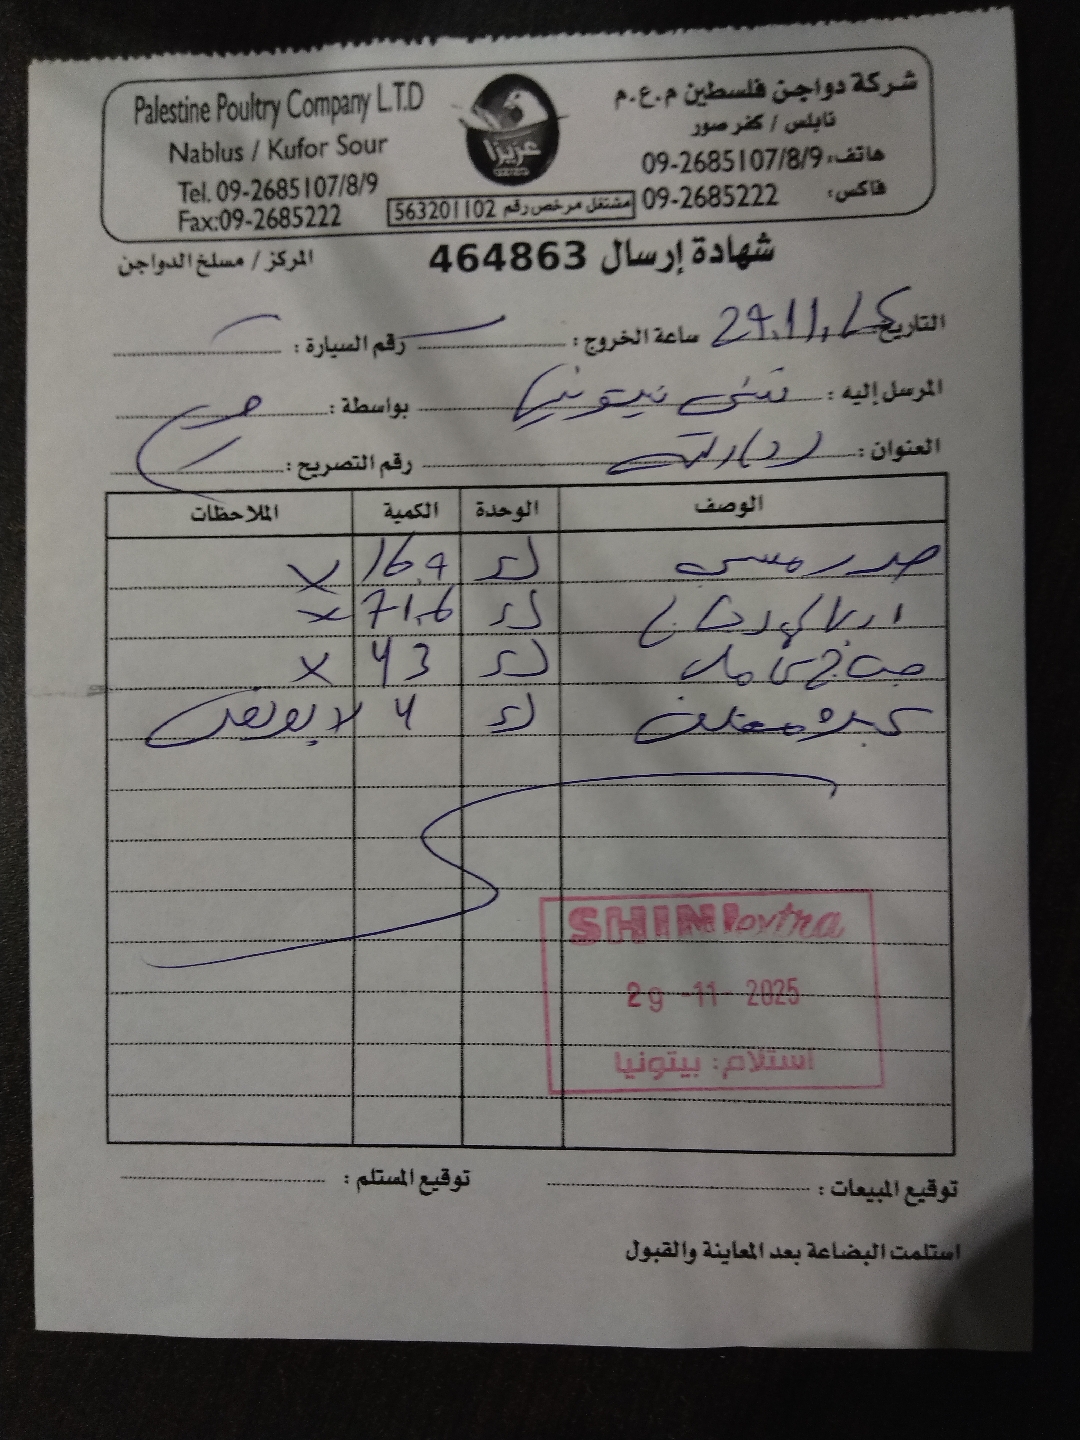 Palestine Poultry Company L.T.D
Nablus / Kufor Sour
Tel. 09-2685107/8/9
Fax:09-2685222
عزيزا
شركة دواجن فلسطين م.ع.م
نابلس / كفر صور
هاتف: 09-2685107/8/9
فاكس: 09-2685222
مشتغل مرخص رقم 563201102
شهادة إرسال 464863
المركز / مسلخ الدواجن
التاريخ 29.11. ساعة الخروج : رقم السيارة :
المرسل إليه : شني بيتونيا بواسطة :
العنوان : رقم التصريح :
الوصف الوحدة الكمية الملاحظات
صدر كغ 16.9 X
كغ 71.6 X
كامل كغ 43 X
كبدة كغ 4 لا يوجد
SHINI extra
29 -11- 2025
استلام: بيتونيا
توقيع المبيعات : توقيع المستلم :
استلمت البضاعة بعد المعاينة والقبول